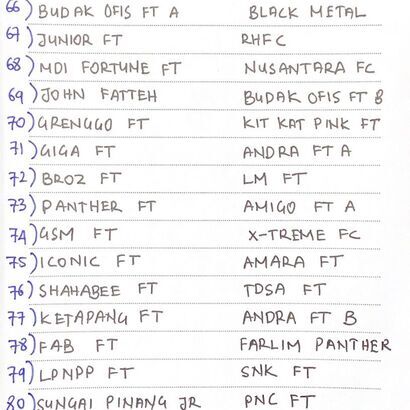 66) BUDAK OFIS FT A BLACK METAL
67) JUNIOR FT RHFC
68) MDI FORTUNE FT NUSANTARA FC
69) JOHN FATTEH BUDAK OFIS FT B
70) GRENGGO FT KIT KAT PINK FT
71) GIGA FT ANDRA FT A
72) BROZ FT LM FT
73) PANTHER FT AMIGO FT A
74) GSM FT X-TREME FC
75) ICONIC FT AMARA FT
76) SHAHABEE FT TDSA FT
77) KETAPANG FT ANDRA FT B
78) FAB FT FARLIM PANTHER
79) LPNPP FT SNK FT
80) SUNGAI PINANG JR PNC FT